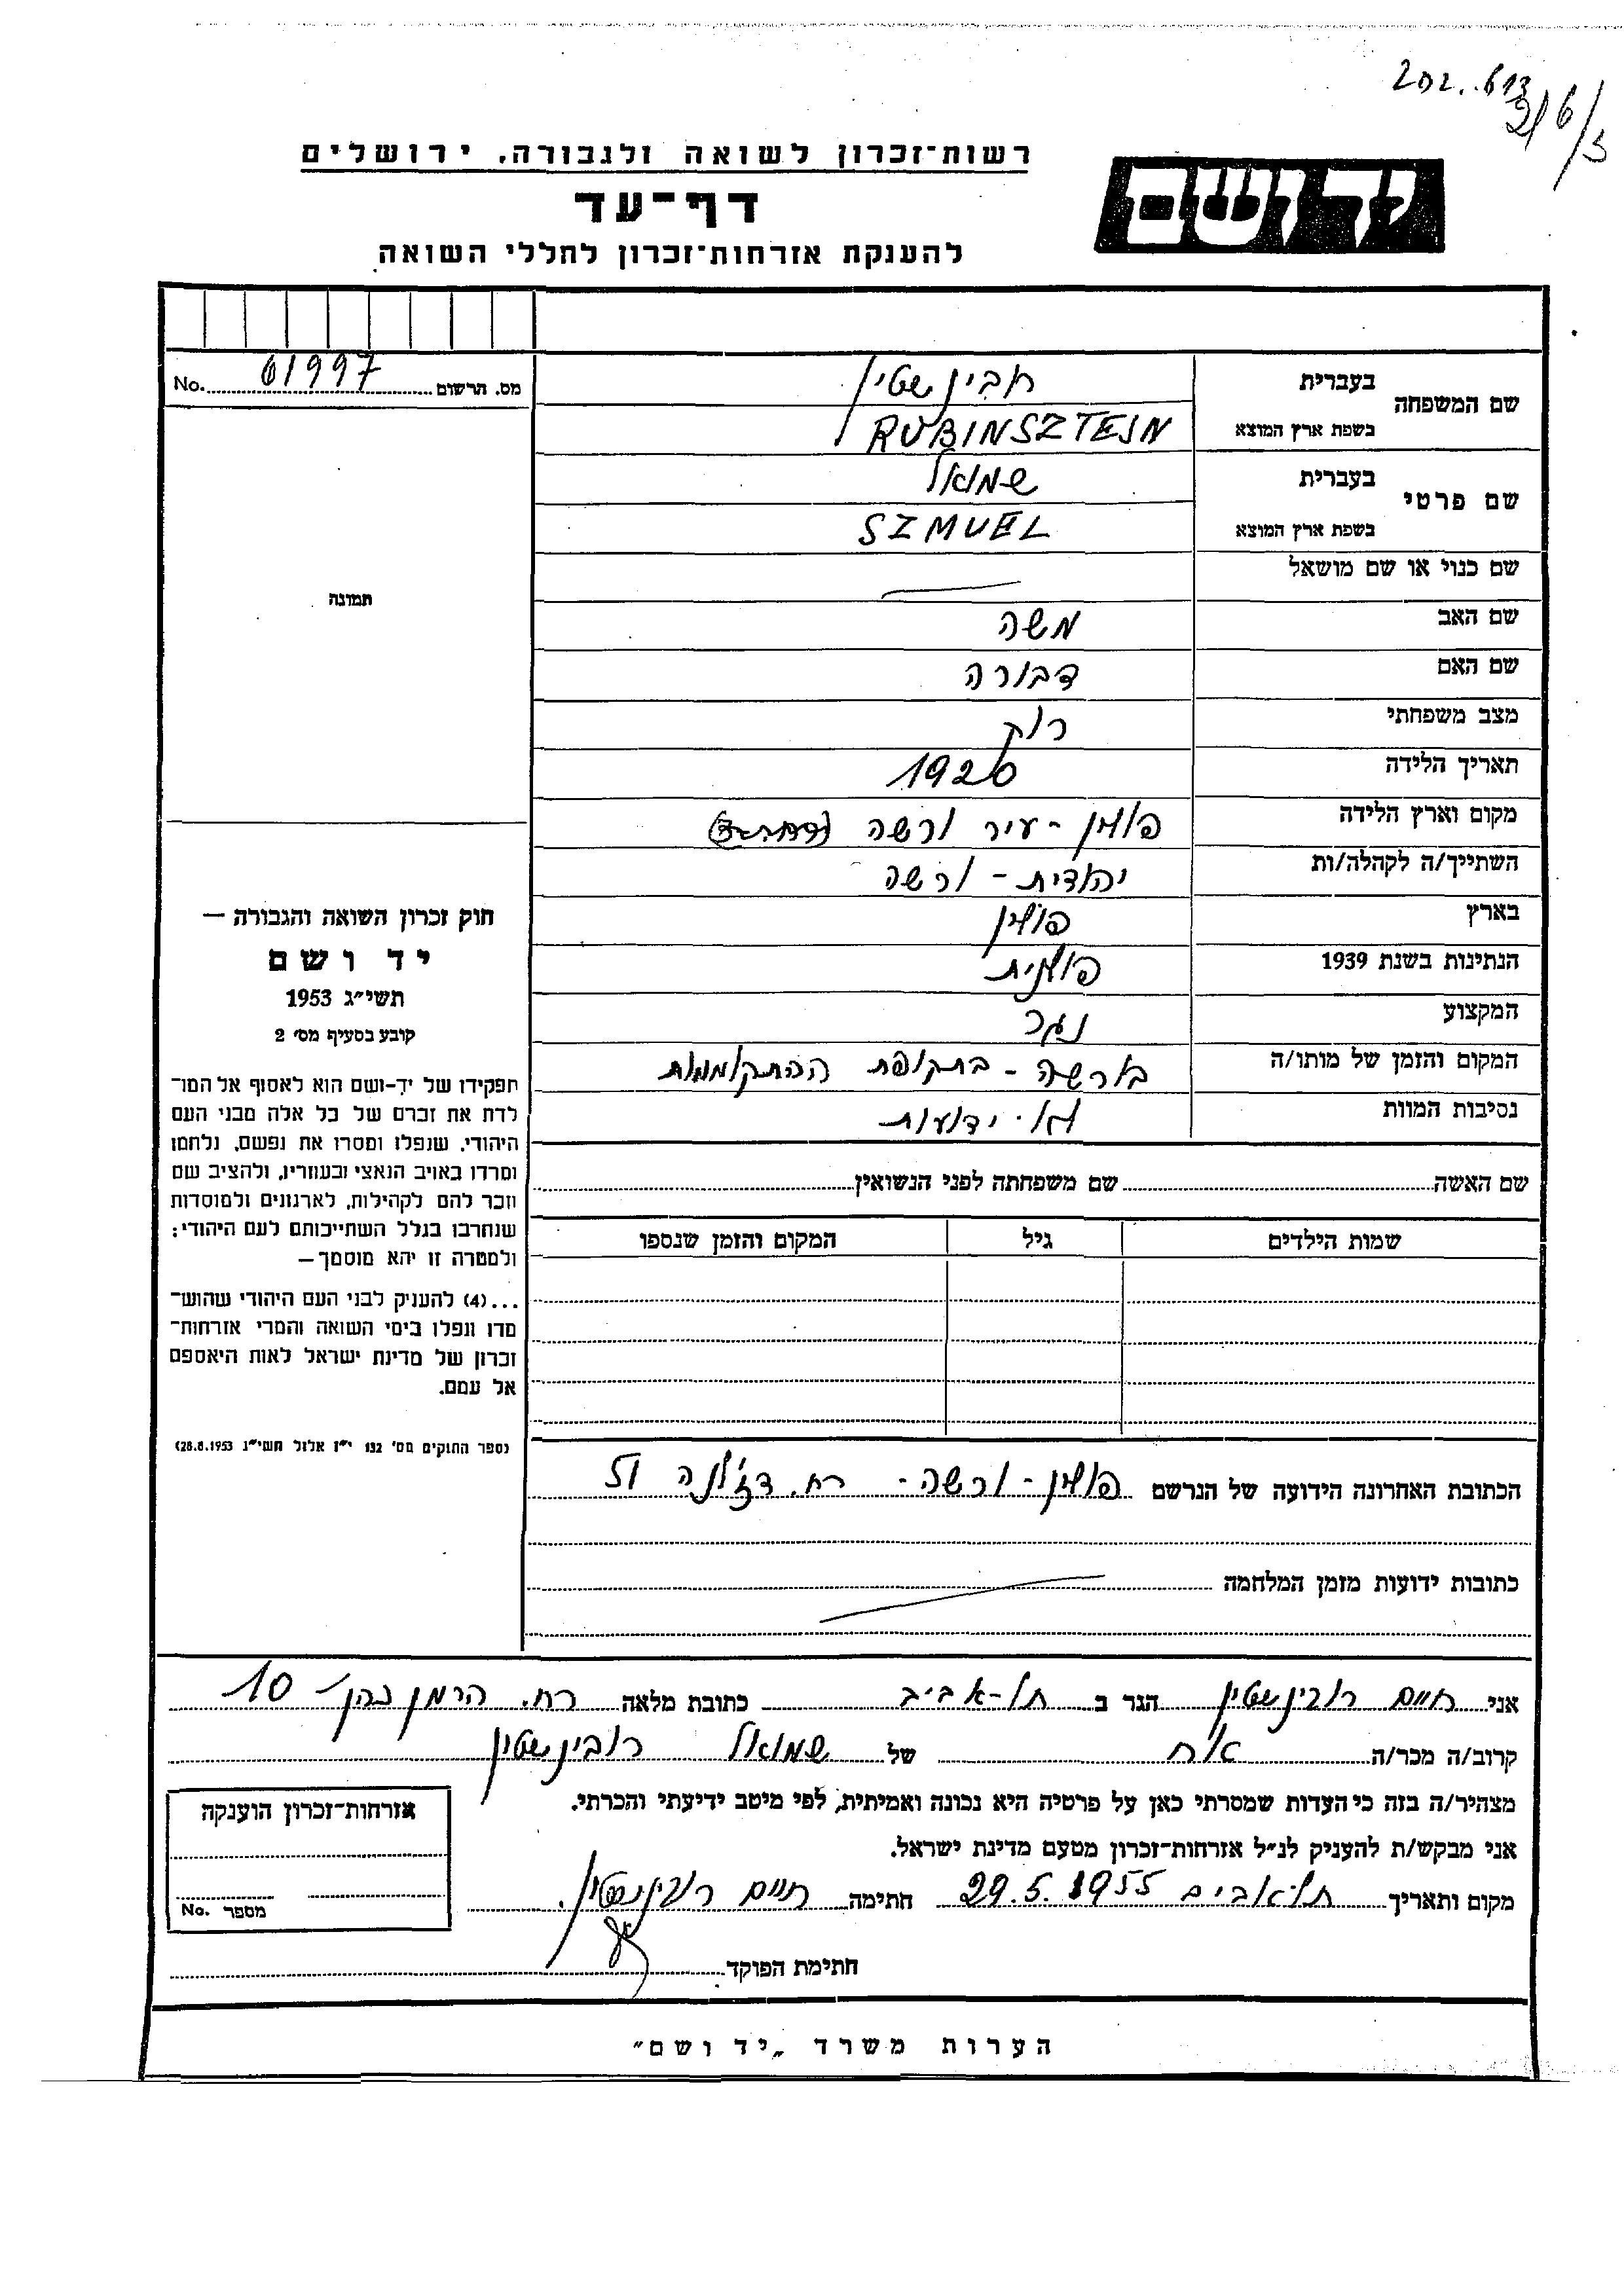 202..613
9/6/5
רשות־זכרון לשואה ולגבורה, ירושלים
ידושם
דף־עד
להענקת אזרחות־זכרון לחללי השואה
מס. הרשום 61997 No.
שם המשפחה
בעברית רובינשטיין
בשפת ארץ המוצא RUBINSZTEJN
שם פרטי
בעברית שמואל
בשפת ארץ המוצא SZMUEL
שם כנוי או שם מושאל
תמונה
שם האב משה
שם האם דבורה
מצב משפחתי רוק
תאריך הלידה 1920
מקום וארץ הלידה פולין - עיר ורשה
השתייך/ה לקהלה/ות יהודית - ורשה
בארץ פולין
הנתינות בשנת 1939 פולנית
המקצוע נגר
המקום והזמן של מותו/ה בורשה - בתקופת ההתקוממות
נסיבות המוות לא ידועות
חוק זכרון השואה והגבורה —
יד ושם
תשי״ג 1953
קובע בסעיף מס׳ 2
תפקידו של יד־ושם הוא לאסוף אל המו־
לדת את זכרם של כל אלה מבני העם
היהודי, שנפלו ומסרו את נפשם, נלחמו
ומרדו באויב הנאצי ובעוזריו, ולהציב שם
וזכר להם לקהילות, לארגונים ולמוסדות
שנחרבו בגלל השתייכותם לעם היהודי;
ולמטרה זו יהא מוסמך —
...(4) להעניק לבני העם היהודי שהוש־
מדו ונפלו בימי השואה והמרי אזרחות־
זכרון של מדינת ישראל לאות היאספם
אל עמם.
(ספר החוקים מס׳ 132 י״ז אלול תשי״ג 28.8.1953)
שם האשה שם משפחתה לפני הנשואין
שמות הילדים גיל המקום והזמן שנספו
הכתובת האחרונה הידועה של הנרשם פולין - ורשה - רח. דז׳לנה 51
כתובות ידועות מזמן המלחמה
אני חיים רובינשטיין הגר ב תל-אביב כתובת מלאה רח. הרמן כהן 10
קרוב/ה מכר/ה אח של שמואל רובינשטיין
מצהיר/ה בזה כי העדות שמסרתי כאן על פרטיה היא נכונה ואמיתית, לפי מיטב ידיעתי והכרתי.
אני מבקש/ת להעניק לנ״ל אזרחות־זכרון מטעם מדינת ישראל.
מקום ותאריך תל-אביב 29.5.1955 חתימה חיים רובינשטיין.
חתימת הפוקד
אזרחות־זכרון הוענקה
מספר No.
הערות משרד „יד ושם״